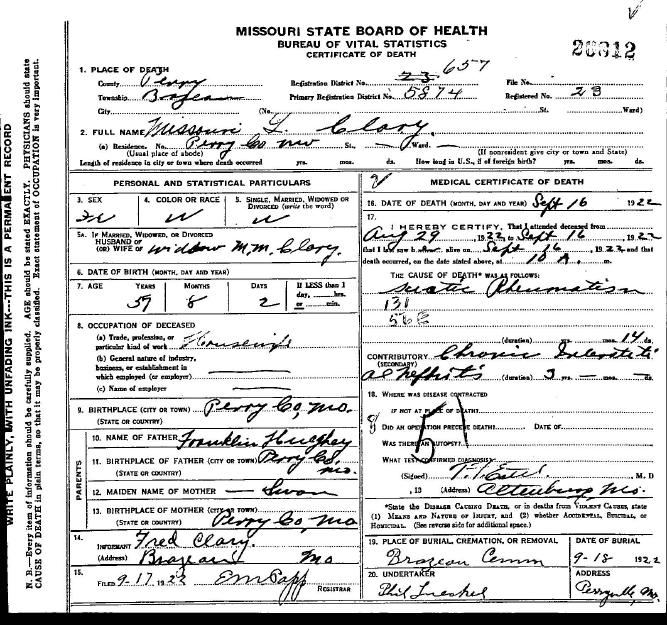 MISSOURI STATE BOARD OF HEALTH
BUREAU OF VITAL STATISTICS
CERTIFICATE OF DEATH
1. PLACE OF DEATH
County Perry
Township Brazeau
City
Registration District No. 23 657
Primary Registration District No. 5874
(No. St. Ward)
File No.
Registered No. 23
2. FULL NAME Missouri L. Clary.
(a) Residence. No. Perry Co Mo St., Ward.
(Usual place of abode) (If nonresident give city or town and State)
Length of residence in city or town where death occurred yrs. mos. ds. How long in U.S., if of foreign birth? yrs. mos. ds.
PERSONAL AND STATISTICAL PARTICULARS
3. SEX 4. COLOR OR RACE 5. SINGLE, MARRIED, WIDOWED OR DIVORCED (write the word)
W W
5a. IF MARRIED, WIDOWED, OR DIVORCED
HUSBAND OF
(OR) WIFE OF widow M.M. Clary.
6. DATE OF BIRTH (MONTH, DAY AND YEAR)
7. AGE YEARS MONTHS DAYS If LESS than 1 day, hrs. or min.
59 8 2
8. OCCUPATION OF DECEASED
(a) Trade, profession, or particular kind of work Housewife
(b) General nature of industry, business, or establishment in which employed (or employer)
(c) Name of employer
9. BIRTHPLACE (CITY OR TOWN) Perry Co, Mo.
(STATE OR COUNTRY)
PARENTS
10. NAME OF FATHER Franklin Hughey
11. BIRTHPLACE OF FATHER (CITY OR TOWN) Perry Co.
(STATE OR COUNTRY) Mo.
12. MAIDEN NAME OF MOTHER — Swan
13. BIRTHPLACE OF MOTHER (CITY OR TOWN)
(STATE OR COUNTRY) Perry Co, Mo
14. INFORMANT Fred Clary.
(Address) Brazeau Mo
15. FILED 9-17, 1922 REGISTRAR
MEDICAL CERTIFICATE OF DEATH
16. DATE OF DEATH (MONTH, DAY AND YEAR) Sept 16 1922
17. I HEREBY CERTIFY, That I attended deceased from
Aug 29, 1922, to Sept 16, 1922
that I last saw h alive on Sept 16, 1922, and that
death occurred, on the date stated above, at 10 A. m.
THE CAUSE OF DEATH* WAS AS FOLLOWS:
Rheumatism
131
(duration) mos. 14 ds.
CONTRIBUTORY Chronic
(SECONDARY)
Nephritis (duration) 3 yrs. mos. ds.
18. WHERE WAS DISEASE CONTRACTED
IF NOT AT PLACE OF DEATH?
DID AN OPERATION PRECEDE DEATH? DATE OF
WAS THERE AN AUTOPSY?
WHAT TEST CONFIRMED DIAGNOSIS?
51
(Signed) M. D.
, 19 (Address) Altenburg Mo.
*State the DISEASE CAUSING DEATH, or in deaths from VIOLENT CAUSES, state
(1) MEANS AND NATURE OF INJURY, and (2) whether ACCIDENTAL, SUICIDAL, or
HOMICIDAL. (See reverse side for additional space.)
19. PLACE OF BURIAL, CREMATION, OR REMOVAL DATE OF BURIAL
Brazeau Cemm 9-18 1922
20. UNDERTAKER ADDRESS
Perryville, Mo.
WRITE PLAINLY, WITH UNFADING INK---THIS IS A PERMANENT RECORD
N. B.—Every item of information should be carefully supplied. AGE should be stated EXACTLY. PHYSICIANS should state
CAUSE OF DEATH in plain terms, so that it may be properly classified. Exact statement of OCCUPATION is very important.